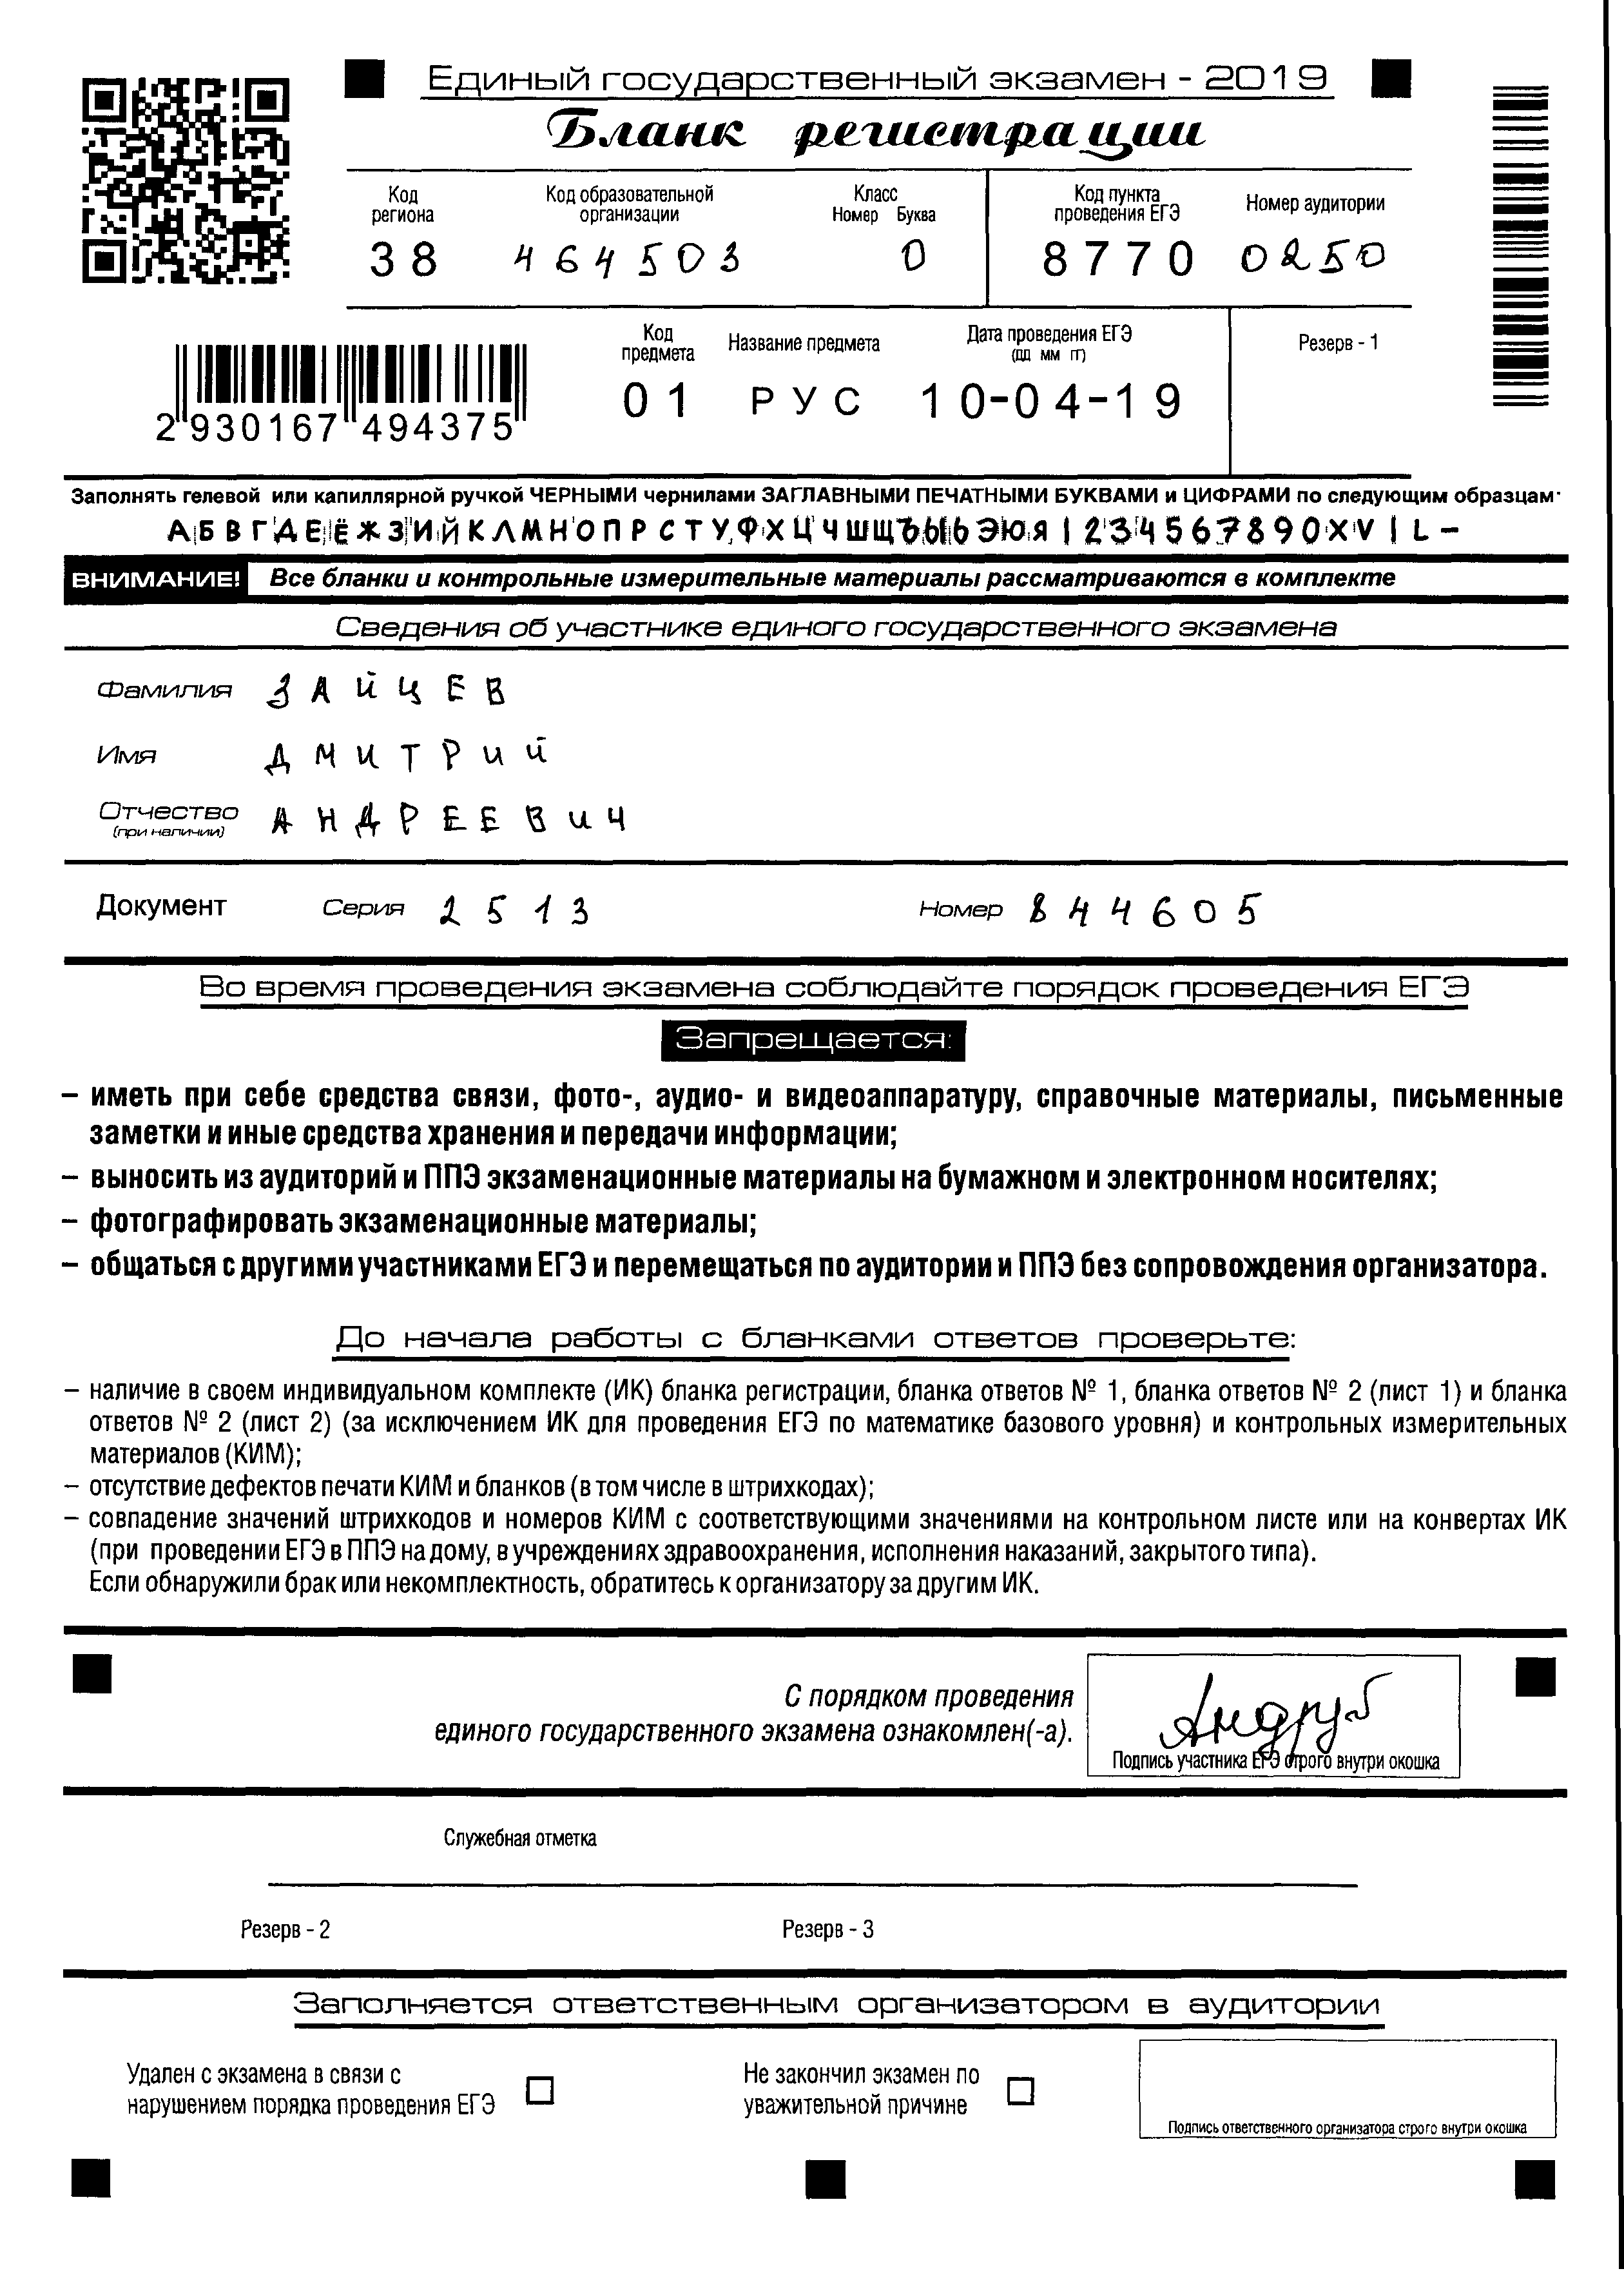 Единый государственный экзамен - 2019
Бланк регистрации
Код региона
Код образовательной организации
Класс
Номер Буква
Код пункта проведения ЕГЭ
Номер аудитории
38 464503 0 8770 0250
Код предмета
Название предмета
Дата проведения ЕГЭ
(дд мм гг)
Резерв - 1
01 РУС 10-04-19
2 930167 494375
Заполнять гелевой или капиллярной ручкой ЧЕРНЫМИ чернилами ЗАГЛАВНЫМИ ПЕЧАТНЫМИ БУКВАМИ и ЦИФРАМИ по следующим образцам:
АБВГДЕЁЖЗИЙКЛМНОПРСТУФХЦЧШЩЪЫЬЭЮЯ1234567890XVIL-
ВНИМАНИЕ! Все бланки и контрольные измерительные материалы рассматриваются в комплекте
Сведения об участнике единого государственного экзамена
Фамилия ЗАЙЦЕВ
Имя ДМИТРИЙ
Отчество АНДРЕЕВИЧ
(при наличии)
Документ Серия 2513 Номер 844605
Во время проведения экзамена соблюдайте порядок проведения ЕГЭ
Запрещается:
– иметь при себе средства связи, фото-, аудио- и видеоаппаратуру, справочные материалы, письменные
заметки и иные средства хранения и передачи информации;
– выносить из аудиторий и ППЭ экзаменационные материалы на бумажном и электронном носителях;
– фотографировать экзаменационные материалы;
– общаться с другими участниками ЕГЭ и перемещаться по аудитории и ППЭ без сопровождения организатора.
До начала работы с бланками ответов проверьте:
– наличие в своем индивидуальном комплекте (ИК) бланка регистрации, бланка ответов № 1, бланка ответов № 2 (лист 1) и бланка
ответов № 2 (лист 2) (за исключением ИК для проведения ЕГЭ по математике базового уровня) и контрольных измерительных
материалов (КИМ);
– отсутствие дефектов печати КИМ и бланков (в том числе в штрихкодах);
– совпадение значений штрихкодов и номеров КИМ с соответствующими значениями на контрольном листе или на конвертах ИК
(при проведении ЕГЭ в ППЭ на дому, в учреждениях здравоохранения, исполнения наказаний, закрытого типа).
Если обнаружили брак или некомплектность, обратитесь к организатору за другим ИК.
С порядком проведения
единого государственного экзамена ознакомлен(-а).
Подпись участника ЕГЭ строго внутри окошка
Служебная отметка
Резерв - 2 Резерв - 3
Заполняется ответственным организатором в аудитории
Удален с экзамена в связи с
нарушением порядка проведения ЕГЭ
Не закончил экзамен по
уважительной причине
Подпись ответственного организатора строго внутри окошка